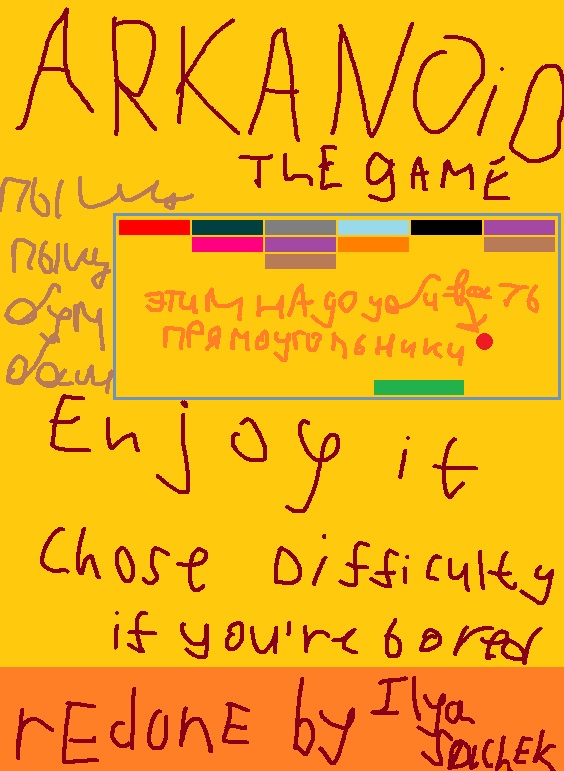 ARKANOiD
THE gAME
пыщ
пыщ
бум
бам
этим надо убивать
прямоугольники
Enjoy it
Chose Difficulty
if you're bored
rEdonE by Ilya